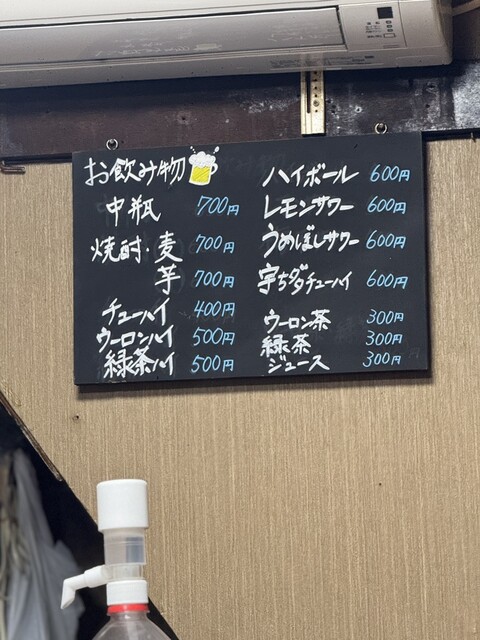 お飲み物
中瓶 700円
焼酎・麦 700円
芋 700円
チューハイ 400円
ウーロンハイ 500円
緑茶ハイ 500円
ハイボール 600円
レモンサワー 600円
うめぼしサワー 600円
宇ち多゙チューハイ 600円
ウーロン茶 300円
緑茶 300円
ジュース 300円